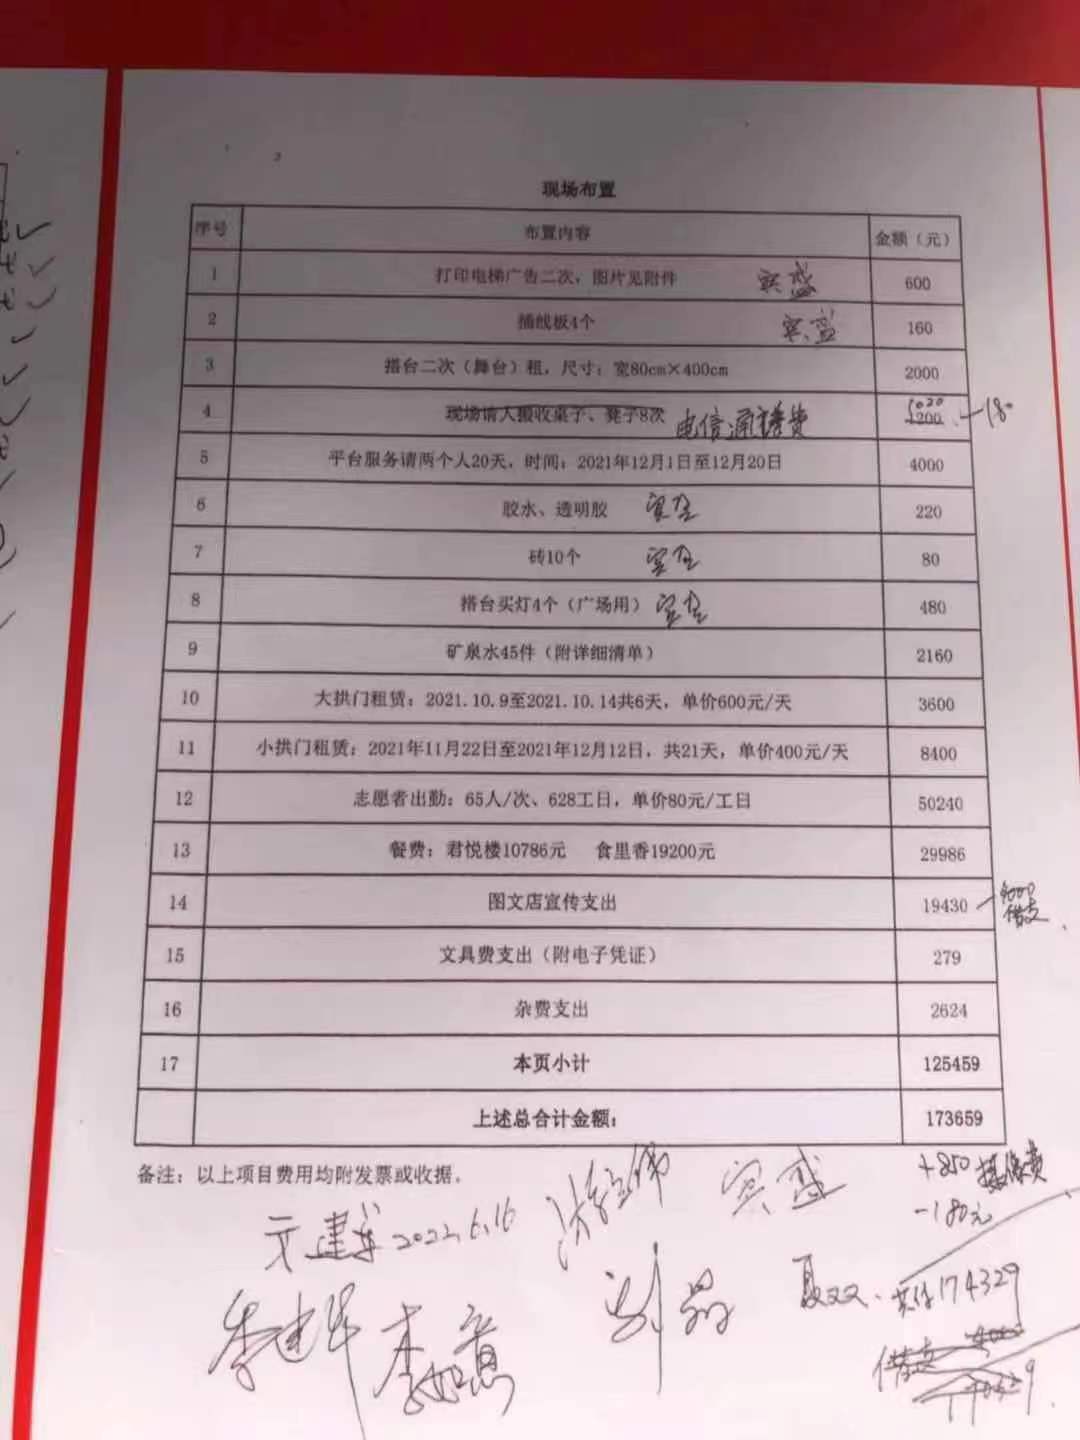 现场布置
序号 布置内容 金额（元）
1 打印电梯广告二次，图片见附件 宾盛 600
2 插线板4个 宾盛 160
3 搭台二次（舞台）租，尺寸：宽80cm×400cm 2000
4 现场请人搬收桌子、凳子8次 电信通 费 1020 1200 -180
5 平台服务请两个人20天，时间：2021年12月1日至12月20日 4000
6 胶水、透明胶 220
7 砖10个 80
8 搭台买灯4个（广场用） 480
9 矿泉水45件（附详细清单） 2160
10 大拱门租赁：2021.10.9至2021.10.14共6天，单价600元/天 3600
11 小拱门租赁：2021年11月22日至2021年12月12日，共21天，单价400元/天 8400
12 志愿者出勤：65人/次、628工日，单价80元/工日 50240
13 餐费：君悦楼10786元 食里香19200元 29986
14 图文店宣传支出 19430 -4000
借支
15 文具费支出（附电子凭证） 279
16 杂费支出 2624
17 本页小计 125459
上述总合计金额： 173659
备注：以上项目费用均附发票或收据。
+850 摄像费
-180元
宾盛
建华 2022.6.16
夏双双 174329
李建华 李如意
借支 4000
170329